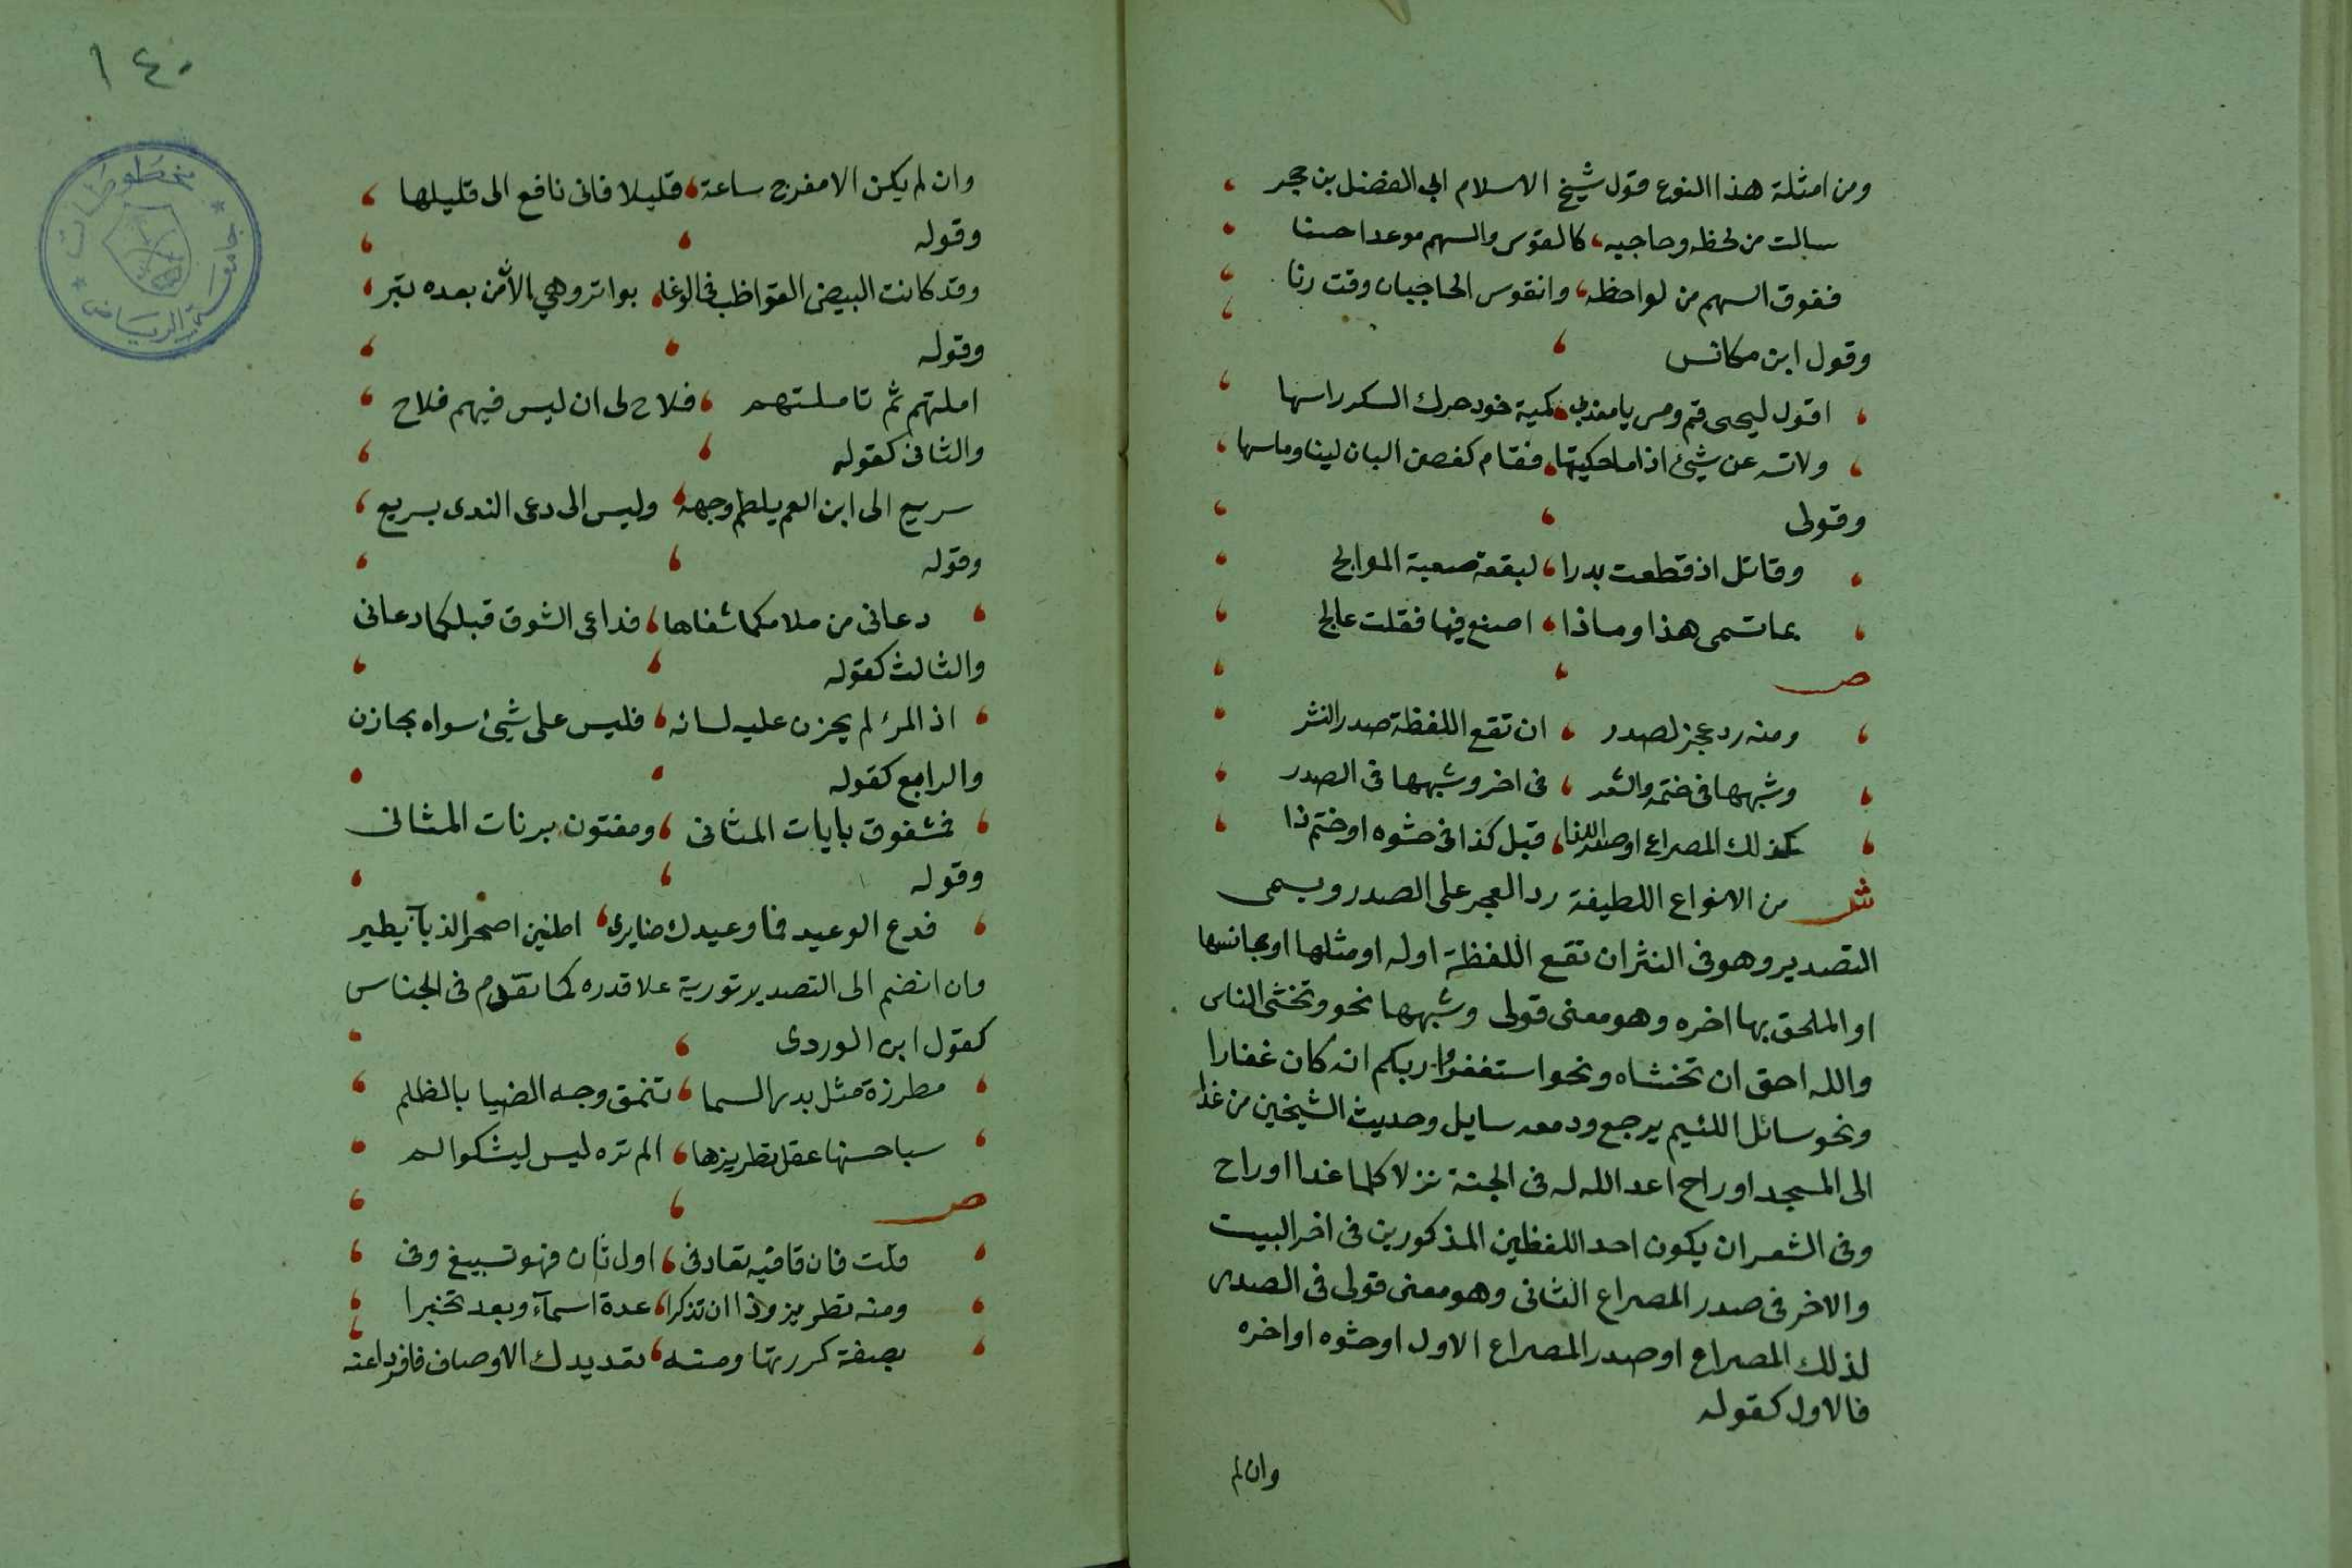 ومن امثلة هذا النوع قول شيخ الاسلام ابي الفضل بن حجر
سالت من لحظه وحاجبه، كالقوس والسهم موعدا حسنا
ففوق السهم من لواحظه، وانقوس الحاجبان وقت رنا
وقول ابن مكانس
اقول ليحيى قم ومس يا معذبي، كمية خود حرك السكر راسها
ولاته عن شيئ اذا ما حكيتها، فقام كغصن البان لينا وماسها
وقولى
وقائل اذ قطعت بدرا، لبقعة صعبة الموالج
بما تسمى هذا وماذا، اصنع فيها فقلت عالج
ص
ومنه رد عجز لصدر، ان تقع اللفظة صدر النثر
وشبهها فى ختمه والشعر، فى اخر وشبهها فى الصدر
كذلك المصراع او صدر اللذا، قبل كذا فى حشوه او ختم ذا
ش من الانواع اللطيفة رد العجز على الصدر ويسمى
التصدير وهو فى النثر ان تقع اللفظة اوله او مثلها او مجانسها
او الملحق بها اخره وهو معنى قولى وشبهها نحو وتخشى الناس
والله احق ان تخشاه ونحو استغفروا ربكم انه كان غفارا
ونحو سائل اللئيم يرجع ودمعه سايل وحديث الشيخين من غدا
الى المسجد او راح اعد الله له فى الجنة نزلا كلما غدا او راح
وفى الشعر ان يكون احد اللفظين المذكورين فى اخر البيت
والاخر فى صدر المصراع الثانى وهو معنى قولى فى الصدر
لذلك المصراع او صدر المصراع الاول او حشوه او اخره
فالاول كقوله
وان لم
١٤٠
مخطوطات
جامعة الرياض
وان لم يكن الا مفرج ساعة، قليلا فانى نافع الى قليلها
وقوله
وقد كانت البيض القواظب فى الوغا، بواتر وهي الآن من بعده بتر
وقوله
املتهم ثم تاملتهم، فلاح لى ان ليس فيهم فلاح
والثانى كقوله
سريع الى ابن العم يلطم وجهه، وليس الى دعى الندى بسريع
وقوله
دعانى من ملامكما سفاها، فداعى الشوق قبلكما دعانى
والثالث كقوله
اذ المرء لم يخزن عليه لسانه، فليس على شيئ سواه بخازن
والرابع كقوله
فمشغوف بايات المثانى، ومفتون برنات المثانى
وقوله
فدع الوعيد فما وعيدك ضايرى، اطنين اجنحة الذباب يطير
وان انضم الى التصدير تورية علا قدره كما تقدم فى الجناس
كقول ابن الوردى
مطرزة مثل بدر السما، تنمق وجه الضيا بالظلم
سبا حسنها عقل تطريزها، الم تره ليس ليشكو الم
ص
قلت فان قافيه تعاد فى، اول ثان فهو تسبيغ وفى
ومنه تطريز وذا ان تذكرا، عدة اسمآء وبعد تخبرا
بصفة كررتها ومنه، تعديدك الاوصاف فافرد اعنه